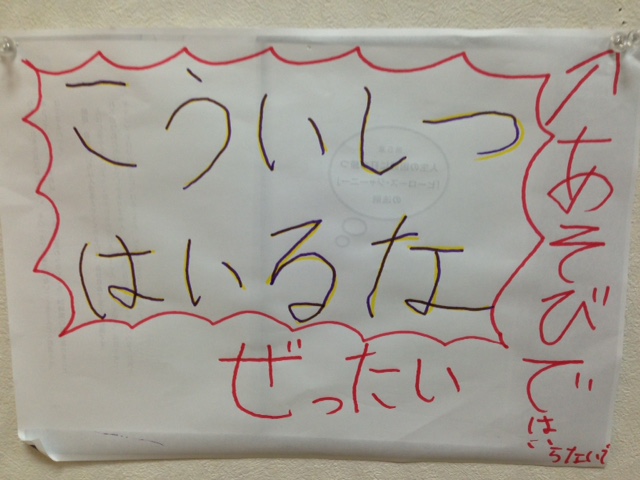 こういしつ
はいるな
ぜったい
あそびではいらないで